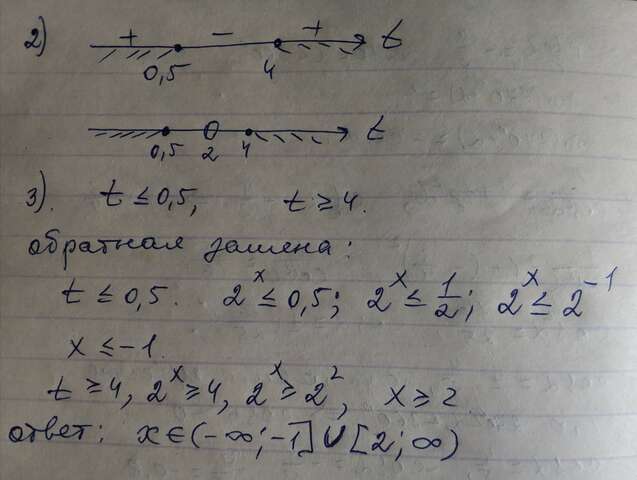 2) + - + t
0,5 4
t
0,5 2 4
3). t ≤ 0,5, t ≥ 4.
обратная замена:
t ≤ 0,5. 2^x ≤ 0,5; 2^x ≤ 1/2; 2^x ≤ 2^-1
x ≤ -1.
t ≥ 4, 2^x ≥ 4, 2^x ≥ 2^2, x ≥ 2
ответ: x ∈ (-∞; -1] ∪ [2; ∞)